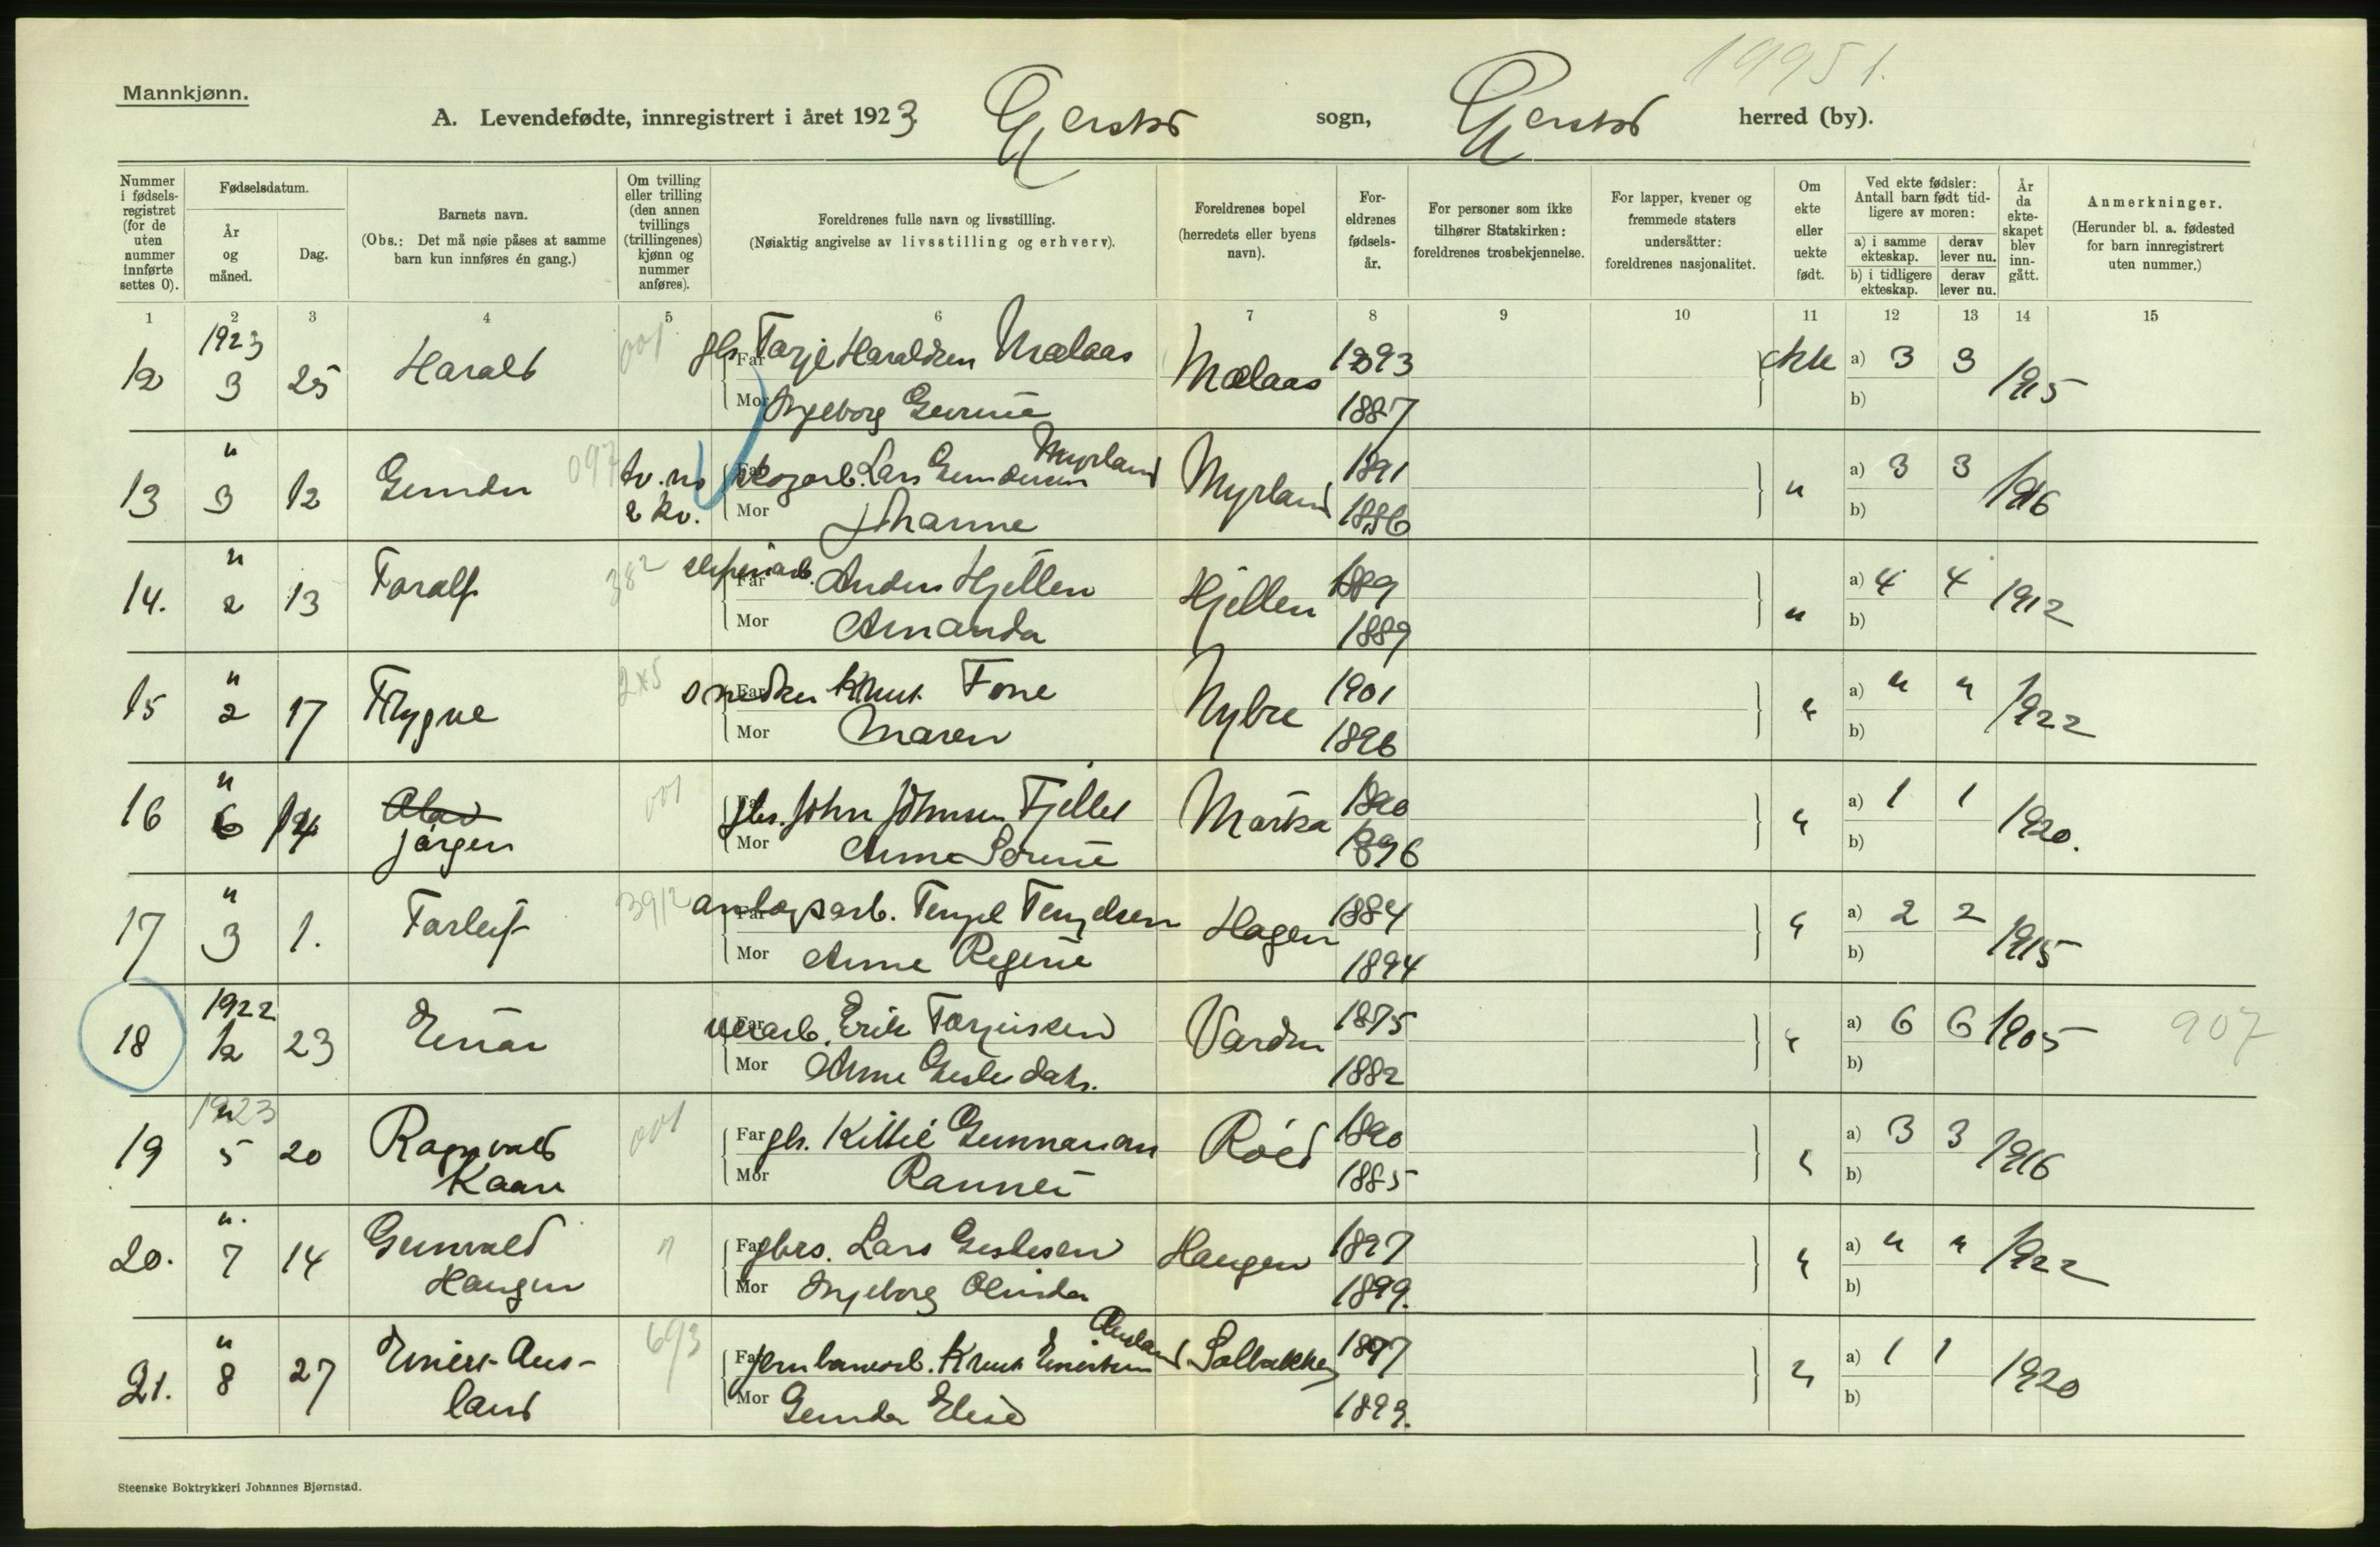 19951.
Mannkjønn.
A. Levendefødte, innregistrert i året 1923 Gjerstad sogn, Gjerstad herred (by).
Nummer i fødsels- registret (for de uten nummer innførte settes 0).
Fødselsdatum.
År og måned.
Dag.
Barnets navn.
(Obs.: Det må nøie påses at samme barn kun innføres én gang.)
Om tvilling eller trilling (den annen tvillings (trillingenes) kjønn og nummer anføres).
Foreldrenes fulle navn og livsstilling.
(Nøiaktig angivelse av livsstilling og erhverv).
Foreldrenes bopel (herredets eller byens navn).
For- eldrenes fødsels- år.
For personer som ikke tilhører Statskirken: foreldrenes trosbekjennelse.
For lapper, kvener og fremmede staters undersåtter: foreldrenes nasjonalitet.
Om ekte eller uekte født.
Ved ekte fødsler: Antall barn født tid- ligere av moren:
a) i samme ekteskap. derav lever nu.
b) i tidligere ekteskap. derav lever nu.
År da ekte- skapet blev inn- gått.
Anmerkninger.
(Herunder bl. a. fødested for barn innregistrert uten nummer.)
1 2 3 4 5 6 7 8 9 10 11 12 13 14 15
12 1923 3 25 Harald 001 gbr. Far Tarje Haraldsen Mælaas Mælaas 1893 ekte a) 3 3 1915
Mor Ingeborg Gurine 1887 b)
13 " 3 12 Gunder 097 tv. m. 2 kv. Far skogarb. Lars Gundersen Myrland Myrland 1891 " a) 3 3 1916
Mor Johanne 1886 b)
14. " 2 13 Toralf 382 sliperiarb. Far Anders Hjellen Hjellen 1889 " a) 4 4 1912
Mor Amanda 1889 b)
15 " 2 17 Trygve 2x5 snedker Far Knut Tone Nybre 1901 " a) " " 1922
Mor Maren 1896 b)
16 " 6 14 Olav Jørgen 001 Far gbr. John Johnsen Fjellet Marka 1890 " a) 1 1 1920.
Mor Anne Serine 1896 b)
17 " 3 1. Tarleif 3912 anlægsarb. Far Tengel Tengelsen Hagen 1884 " a) 2 2 1915
Mor Anne Regine 1894 b)
18 1922 12 23 Einar Far veiarb. Erik Torjusken Varden 1875 " a) 6 6 1905 907
Mor Anne Gislesdatr. 1882 b)
19 1923 " 5 20 Ragnvald Kaare 001 Far gbr. Kittil Gunnarson Røed 1890 " a) 3 3 1916
Mor Rannei 1885 b)
20. " 7 14 Gunvald Haugen " Far gbrs. Lars Gislesen Haugen 1897 " a) " " 1922
Mor Ingeborg Olinda 1899. b)
21. " 8 27 Einert Aus- land 693 Far jernbanearb. Knut Einertsen Ausland Solbakken 1897 " a) 1 1 1920
Mor Gunda Elise 1899. b)
Steenske Boktrykkeri Johannes Bjørnstad.